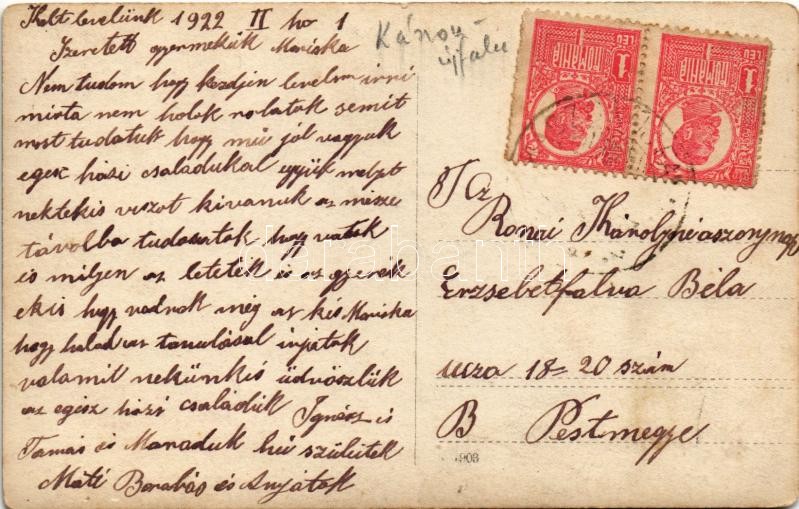 Kelt levelünk 1922 II hó 1
Szeretett gyermekük Mariska
Nem tudom hogy kezdjen levelem irni
mivta nem holok rolatok semit
most tudatuk hogy mü jól vagyuk
egesz házi csaladukal együk melyet
nektekis viszot kivanuk az
távolba tudasatok hogy vatuk
és miljen az letetek és az gyerek
ekis hogy vadnak még az kis Mariska
hogy halad az tanulasal irjatok
valamit nekünkis üdvöszlük
az egisz házi csaladük Ignácz is
Tamás és Maraduk hü szüluitek
Máti Barabás és Anjátok
Kászon
ujfalu
1 LEU ROMANIA
1 LEU ROMANIA
T Cz
Ronai Károlyné aszonynak
Erzsebetfalva Béla
ucza 18-20 szám
B Pestmegye
908
darabanth